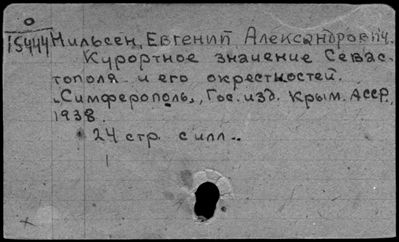 0
15444 Нильсен, Евгений Александрович.
Курортное значение Севас-
тополя и его окрестностей.
Симферополь, Гос. изд. Крым. АССР,
1938.
24 стр. с илл.